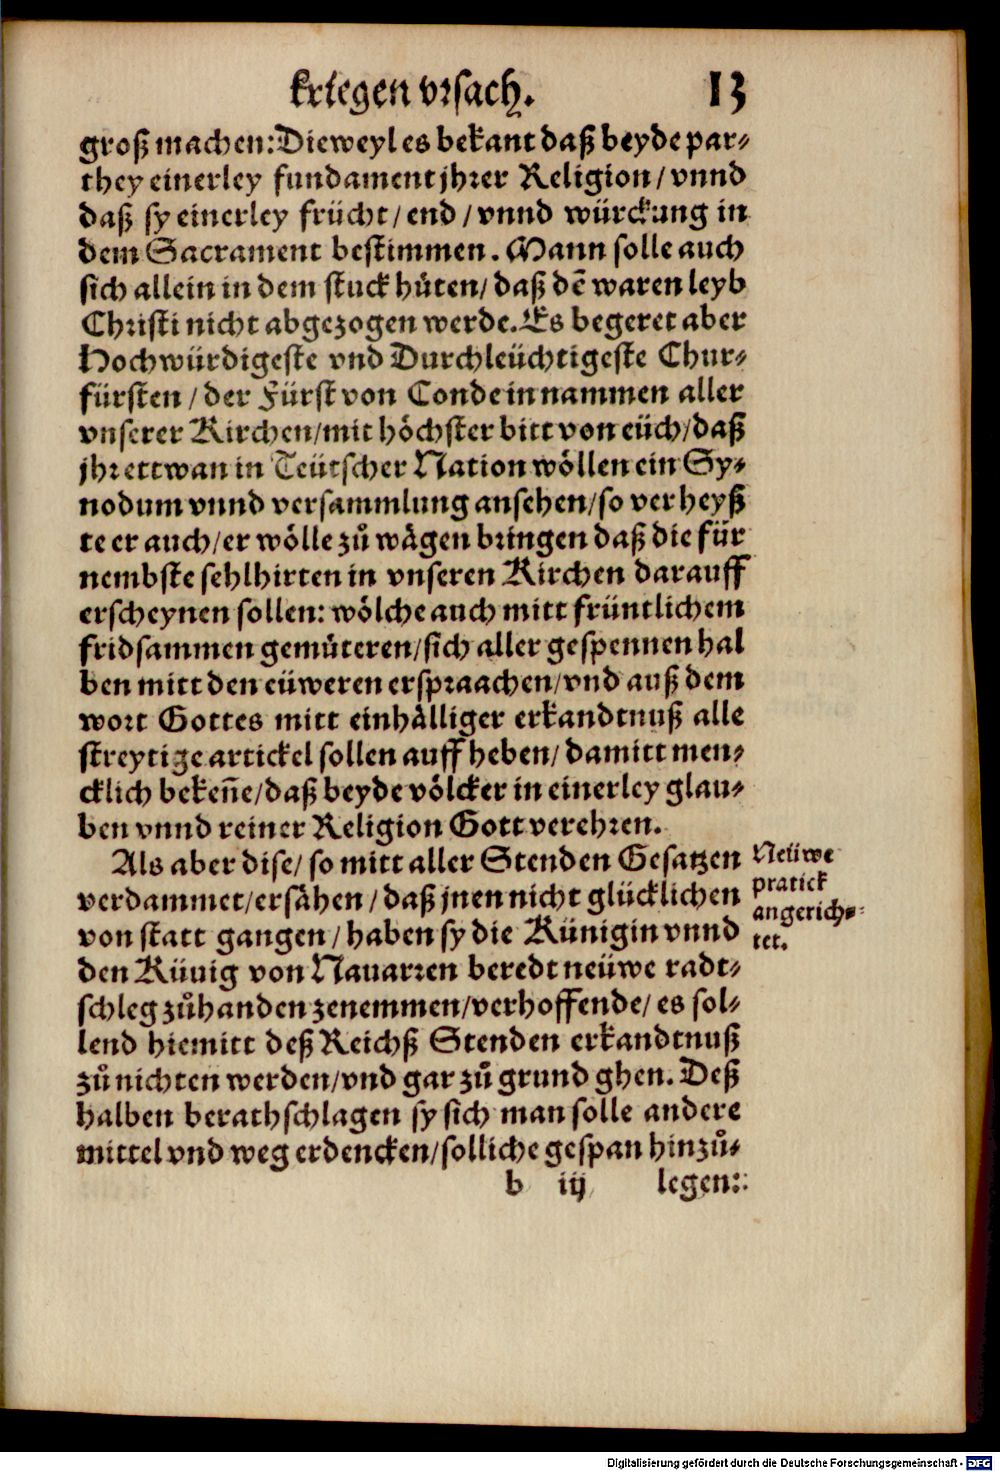 kriegen vrsach. 13
groß machen: Dieweyl es bekant daß beyde par-
they einerley fundament jhrer Religion / vnnd
daß sy einerley frücht / end / vnnd würckung in
dem Sacrament bestimmen. Mann solle auch
sich allein in dem stuck hüten / daß dē waren leyb
Christi nicht abgezogen werde. Es begeret aber
Hochwürdigeste vnd Durchleüchtigeste Chur-
fürsten / der Fürst von Conde in nammen aller
vnserer Kirchen / mit höchster bitt von eüch / daß
jhr ettwan in Teütscher Nation wöllen ein Sy-
nodum vnnd versammlung ansehen / so verheyß
te er auch / er wölle zů wägen bringen daß die für
nembste sehlhirten in vnseren Kirchen darauff
erscheynen sollen: wölche auch mitt früntlichem
fridsammen gemüteren / sich aller gespennen hal
ben mitt den eüweren erspraachen / vnd auß dem
wort Gottes mitt einhälliger erkandtnuß alle
streytige artickel sollen auff heben / damitt men-
cklich bekeñe / daß beyde völcker in einerley glau-
ben vnnd reiner Religion Gott verehren.
Als aber dise / so mitt aller Stenden Gesatzen
verdammet / ersähen / daß jnen nicht glücklichen
von statt gangen / haben sy die Künigin vnnd
den Küuig von Nauarren beredt neüwe radt-
schleg zůhanden zenemmen / verhoffende / es sol-
lend hiemitt deß Reichß Stenden erkandtnuß
zů nichten werden / vnd gar zů grund ghen. Deß
halben berathschlagen sy sich man solle andere
mittel vnd weg erdencken / solliche gespan hinzů-
b iij legen:
Neüwe
pratick
angerich-
tet.
Digitalisierung gefördert durch die Deutsche Forschungsgemeinschaft - DFG